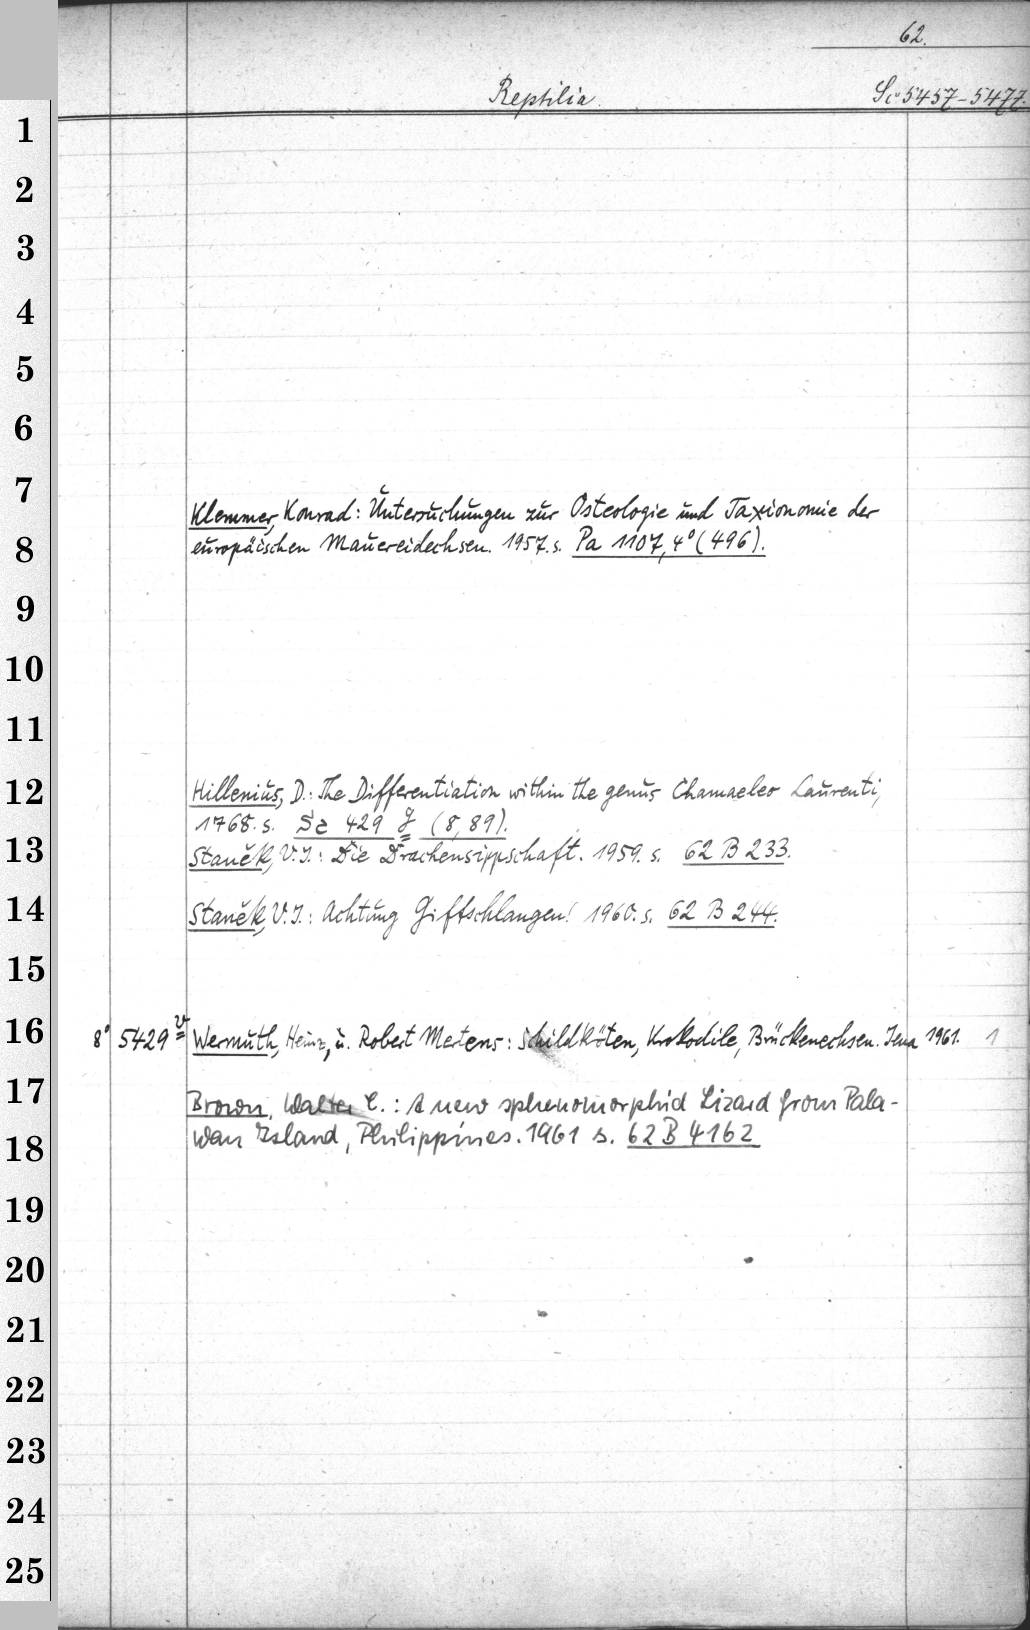 62.
Reptilia. Sc 5457-5477
1
2
3
4
5
6
7
Klemmer, Konrad: Untersuchungen zur Osteologie und Taxionomie der
8 europäischen Mauereidechsen. 1957. s. Pa 1107, 4° (496).
9
10
11
12 Hillenius, D.: The Differentiation within the genus Chamaeleo Laurenti,
1768. s. 429 g (8, 89).
13 Staněk, V.J.: Die Drachensippschaft. 1959. s. 62 B 233.
14 Staněk, V.J.: Achtung Giftschlangen! 1960. s. 62 B 244.
15
16 8° 5429 v Wermuth, Heinz, u. Robert Mertens: Schildköten, Krokodile, Brückenechsen. Jena 1961. 1
17 Brown, Walter C.: A new sphenomorphid Lizard from Pala-
18 wan Island, Philippines. 1961 s. 62 B 4162
19
20
21
22
23
24
25